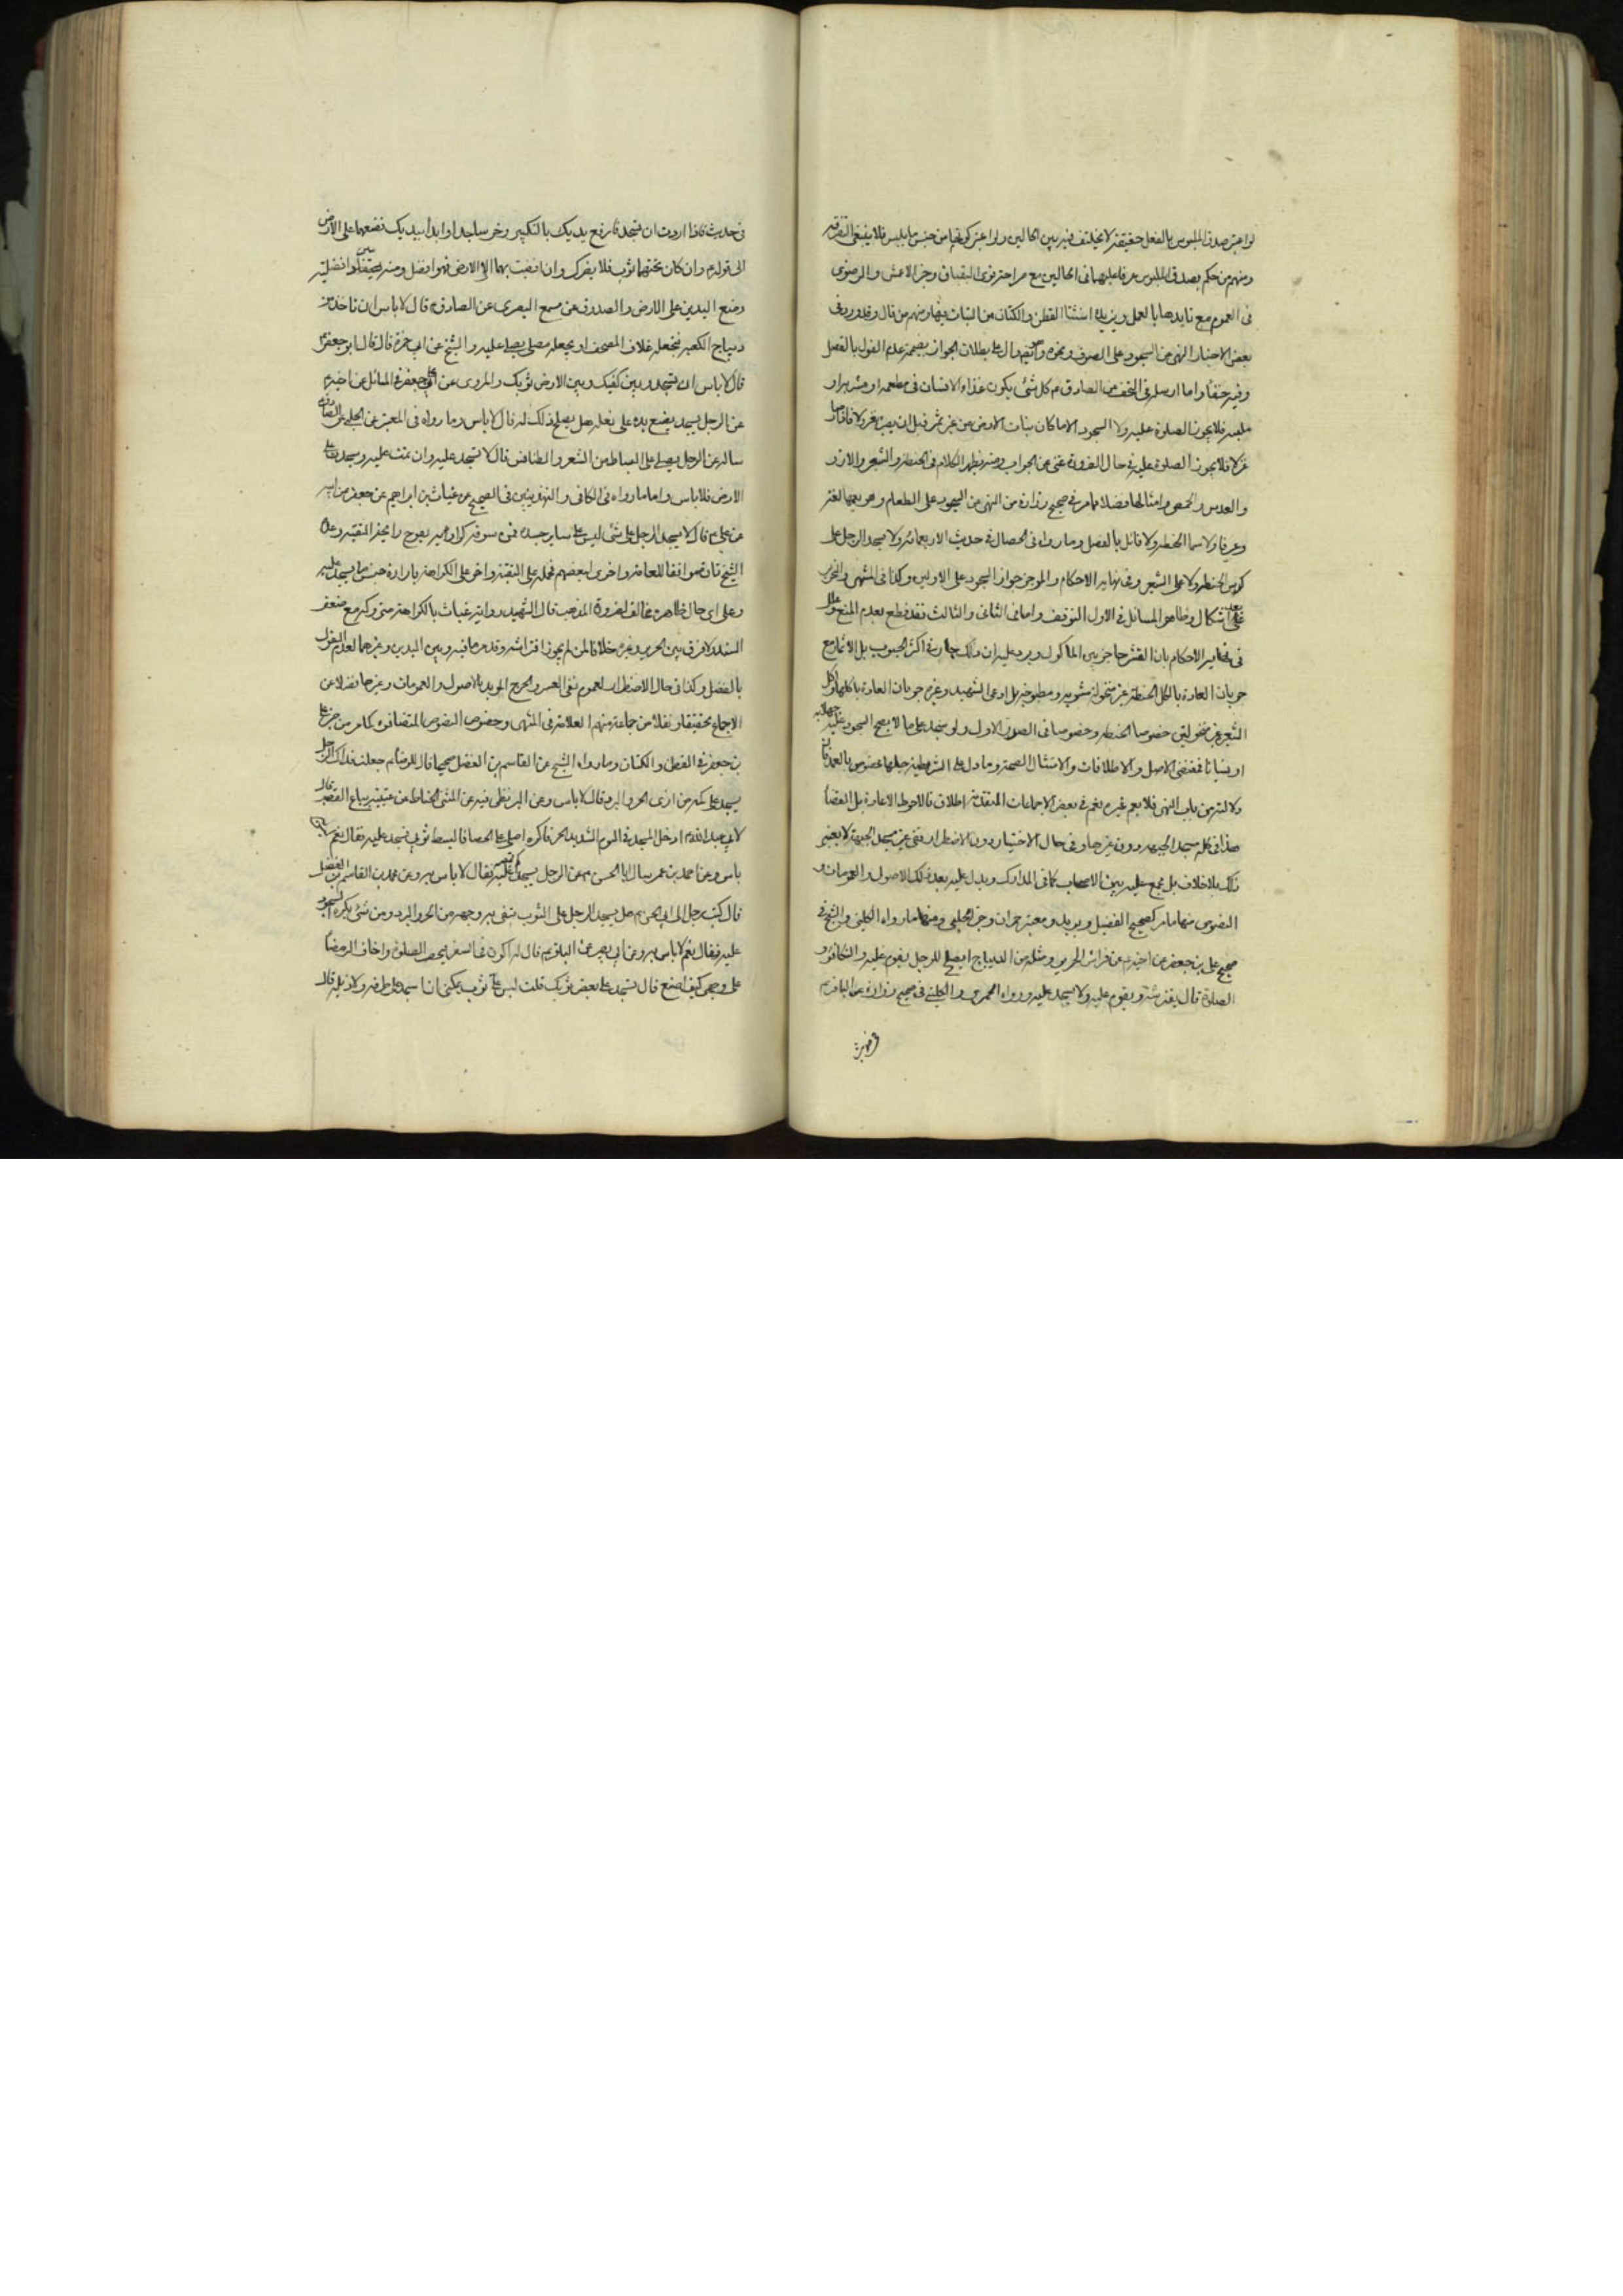 لو اعتبر صدق الملبوس بالفعل حقيقة لا يختلف فيه بين الحالين ولو اعتبر كونها من جنس ما يلبس فلا ينبغي التفرقة
ومنهم من حكم بصدق الملبوس عرفا عليهما في الحالين مع صراحة نوى وخبر الاعمش والرضوي
في العموم مع تايدها بالعمل ويزيله استثنا القطن والكتان من النبات فيها ومنهم من قال وقد ورد في
بعض الاخبار النهي عن السجود على الصوف ونحوه دال على بطلان الجواز بضميمة عدم القول بالفصل
وفيه واما ارسله في التحف عن الصادق م كل شئ يكون غذاء الانسان في مطعمه او مشربه او
ملبسه فلا يجوز الصلوة عليه ولا السجود الا ما كان نبات الارض من غير ثمر قبل ان يصير مغزولا فاذا صار
غزلا فلا يجوز الصلوة عليه في حال الضرورة غني عن الجواب ومنه يظهر الكلام في الحنطة والشعير والارز
والعدس والحمص وامثالها فضلا مما مر في صحيح زرارة من النهي عن السجود على الطعام وهو يعمها لغة
وعرفا ولا سيما الحنطة ولا قائل بالفصل وما رواه في الخصال في حديث الاربعمائة ولا يسجد الرجل على
كدس الحنطة ولا على الشعير وفي نهاية الاحكام والموجز جواز السجود على الاولين وكذا في المنتهى والتحرير
على اشكال وظاهر المسائل في الاول التوقف واما في الثاني والثالث فقد قطع بعدم المنع
في نهاية الاحكام بان القشر حاجز بين الماكول ويرد عليه ان ذلك جار في اكثر الحبوب بل الاثمار مع
جريان العادة باكل الحنطة غير منخولة مشوية ومطبوخة بل ادعى الشهيد وغيره جريان العادة باكلها واكل
الشعير غير منخولين خصوصا الحنطة وخصوصا في الصدر الاول ولو سجد على ما لا يصح السجود عليه جهلا به
او نسيانا فمقتضى الاصل والاطلاقات والامتثال الصحة وما دل على الشرطية جلها مخصوص بالعمد فان
دلالته من باب النهي فلا يعم غيره نعم في بعض الاجماعات المتقدمة اطلاق فالاحوط الاعادة بل القضا
هذا في كله مسجد الجبهة دون غيرها وفي حال الاختيار دون الاضطرار ففي غير مسجد الجبهة لا يعتبر
ذلك بلا خلاف بل مجمع عليه بين الاصحاب كما في المدارك ويدل عليه بعد ذلك الاصول والعمومات و
النصوص منها ما مر كصحيح الفضيل وبريد ومعتبر حمران وخبر الحلبي ومنها ما رواه الكليني والشيخ في
صحيح علي بن جعفر عن اخيه م عن فراش الحرير ومثله من الديباج ايصلح للرجل يقوم عليه والتكأة و
الصلاة قال يفترشه ويقوم عليه ولا يسجد عليه ورواه الحميري والكليني في صحيح زرارة عن الباقر م
في حديث فاذا اردت ان تسجد فارفع يديك بالتكبير وخر ساجدا وابدا بيديك فضعهما على الارض
الى قوله م وان كان تحتهما ثوب فلا يضرك وان افضيت بهما الى الارض فهو افضل ومنه يستفاد افضلية
وضع اليدين على الارض والصدوق عن مسمع البصري عن الصادق م قال لا باس ان تاخذ من
ديباج الكعبة فتجعله غلاف المصحف او يجعله مصلى يصلى عليه والشيخ عن ابي حمزة قال قال ابو جعفر
قال لا باس ان تسجد وبين كفيك وبين الارض ثوبك والمروي عن علي بن جعفر في المسائل عن اخيه م
عن الرجل يسجد يضع يده على نعله هل يصلح ذلك له قال لا باس وما رواه في المعتبر عن الحلبي عن الصادق
ساله عن الرجل يصلي على البساط من الشعر والطنافس قال لا تسجد عليه وان قمت عليه وسجدت على
الارض فلا باس واما ما رواه في الكافي والتهذيبين في الصحيح عن غياث بن ابراهيم عن جعفر عن ابيه
عن علي م قال لا يسجد الرجل على شئ ليس على ساير جسده
الشيخ تارة موافقا للعامة واخرى فحمله على التقية واخر على الكراهة بارادة جنس ما يسجد عليه
وعلى اي حال ظاهره مخالف لضرورة المذهب قال الشهيد رواية غياث بالكراهة مع ضعف
السند ولا فرق بين الحرير وغيره خلافا لمن لم يجوز افتراشه وقد مر ما فيه وبين اليدين وغيرهما لعدم القول
بالفصل وكذا في حال الاضطرار لعموم نفي العسر والحرج المويد بالاصول والعمومات وغيرها فضلا عن
الاجماع تحقيقا ونقلا من جماعة منهم العلامة في المنتهى وخصوص النصوص المتضافرة كما مر من خبر علي
بن جعفر في القطن والكتان وما رواه الشيخ عن القاسم بن الفضل صحيحا قال للرضا م جعلت فداك الرجل
يسجد على كمه من اذى الحر والبرد قال لا باس وعن البزنطي فيه عن المثنى الحناط عن عيينة بياع القصب قال
لابي عبد الله م ادخل المسجد في اليوم الشديد الحر فاكره اصلي على الحصا فابسط ثوبي فاسجد عليه فقال نعم ليس به
باس وعن احمد بن عمر سال ابا الحسن م عن الرجل يسجد على كم قميصه فقال لا باس به وعن محمد بن القاسم بن الفضيل
قال كتب رجل الى ابي الحسن م هل يسجد الرجل على الثوب يتقي به وجهه من الحر والبرد ومن شئ يكره السجود
عليه فقال نعم لا باس به وعن ابي بصير عن الباقر م قال له اكون في السفر فيحضر الصلوة واخاف الرمضا
على وجهي كيف اصنع قال تسجد على بعض ثوبك قلت ليس علي ثوب يمكنني ان اسجد على طرفه ولا ذيله قال